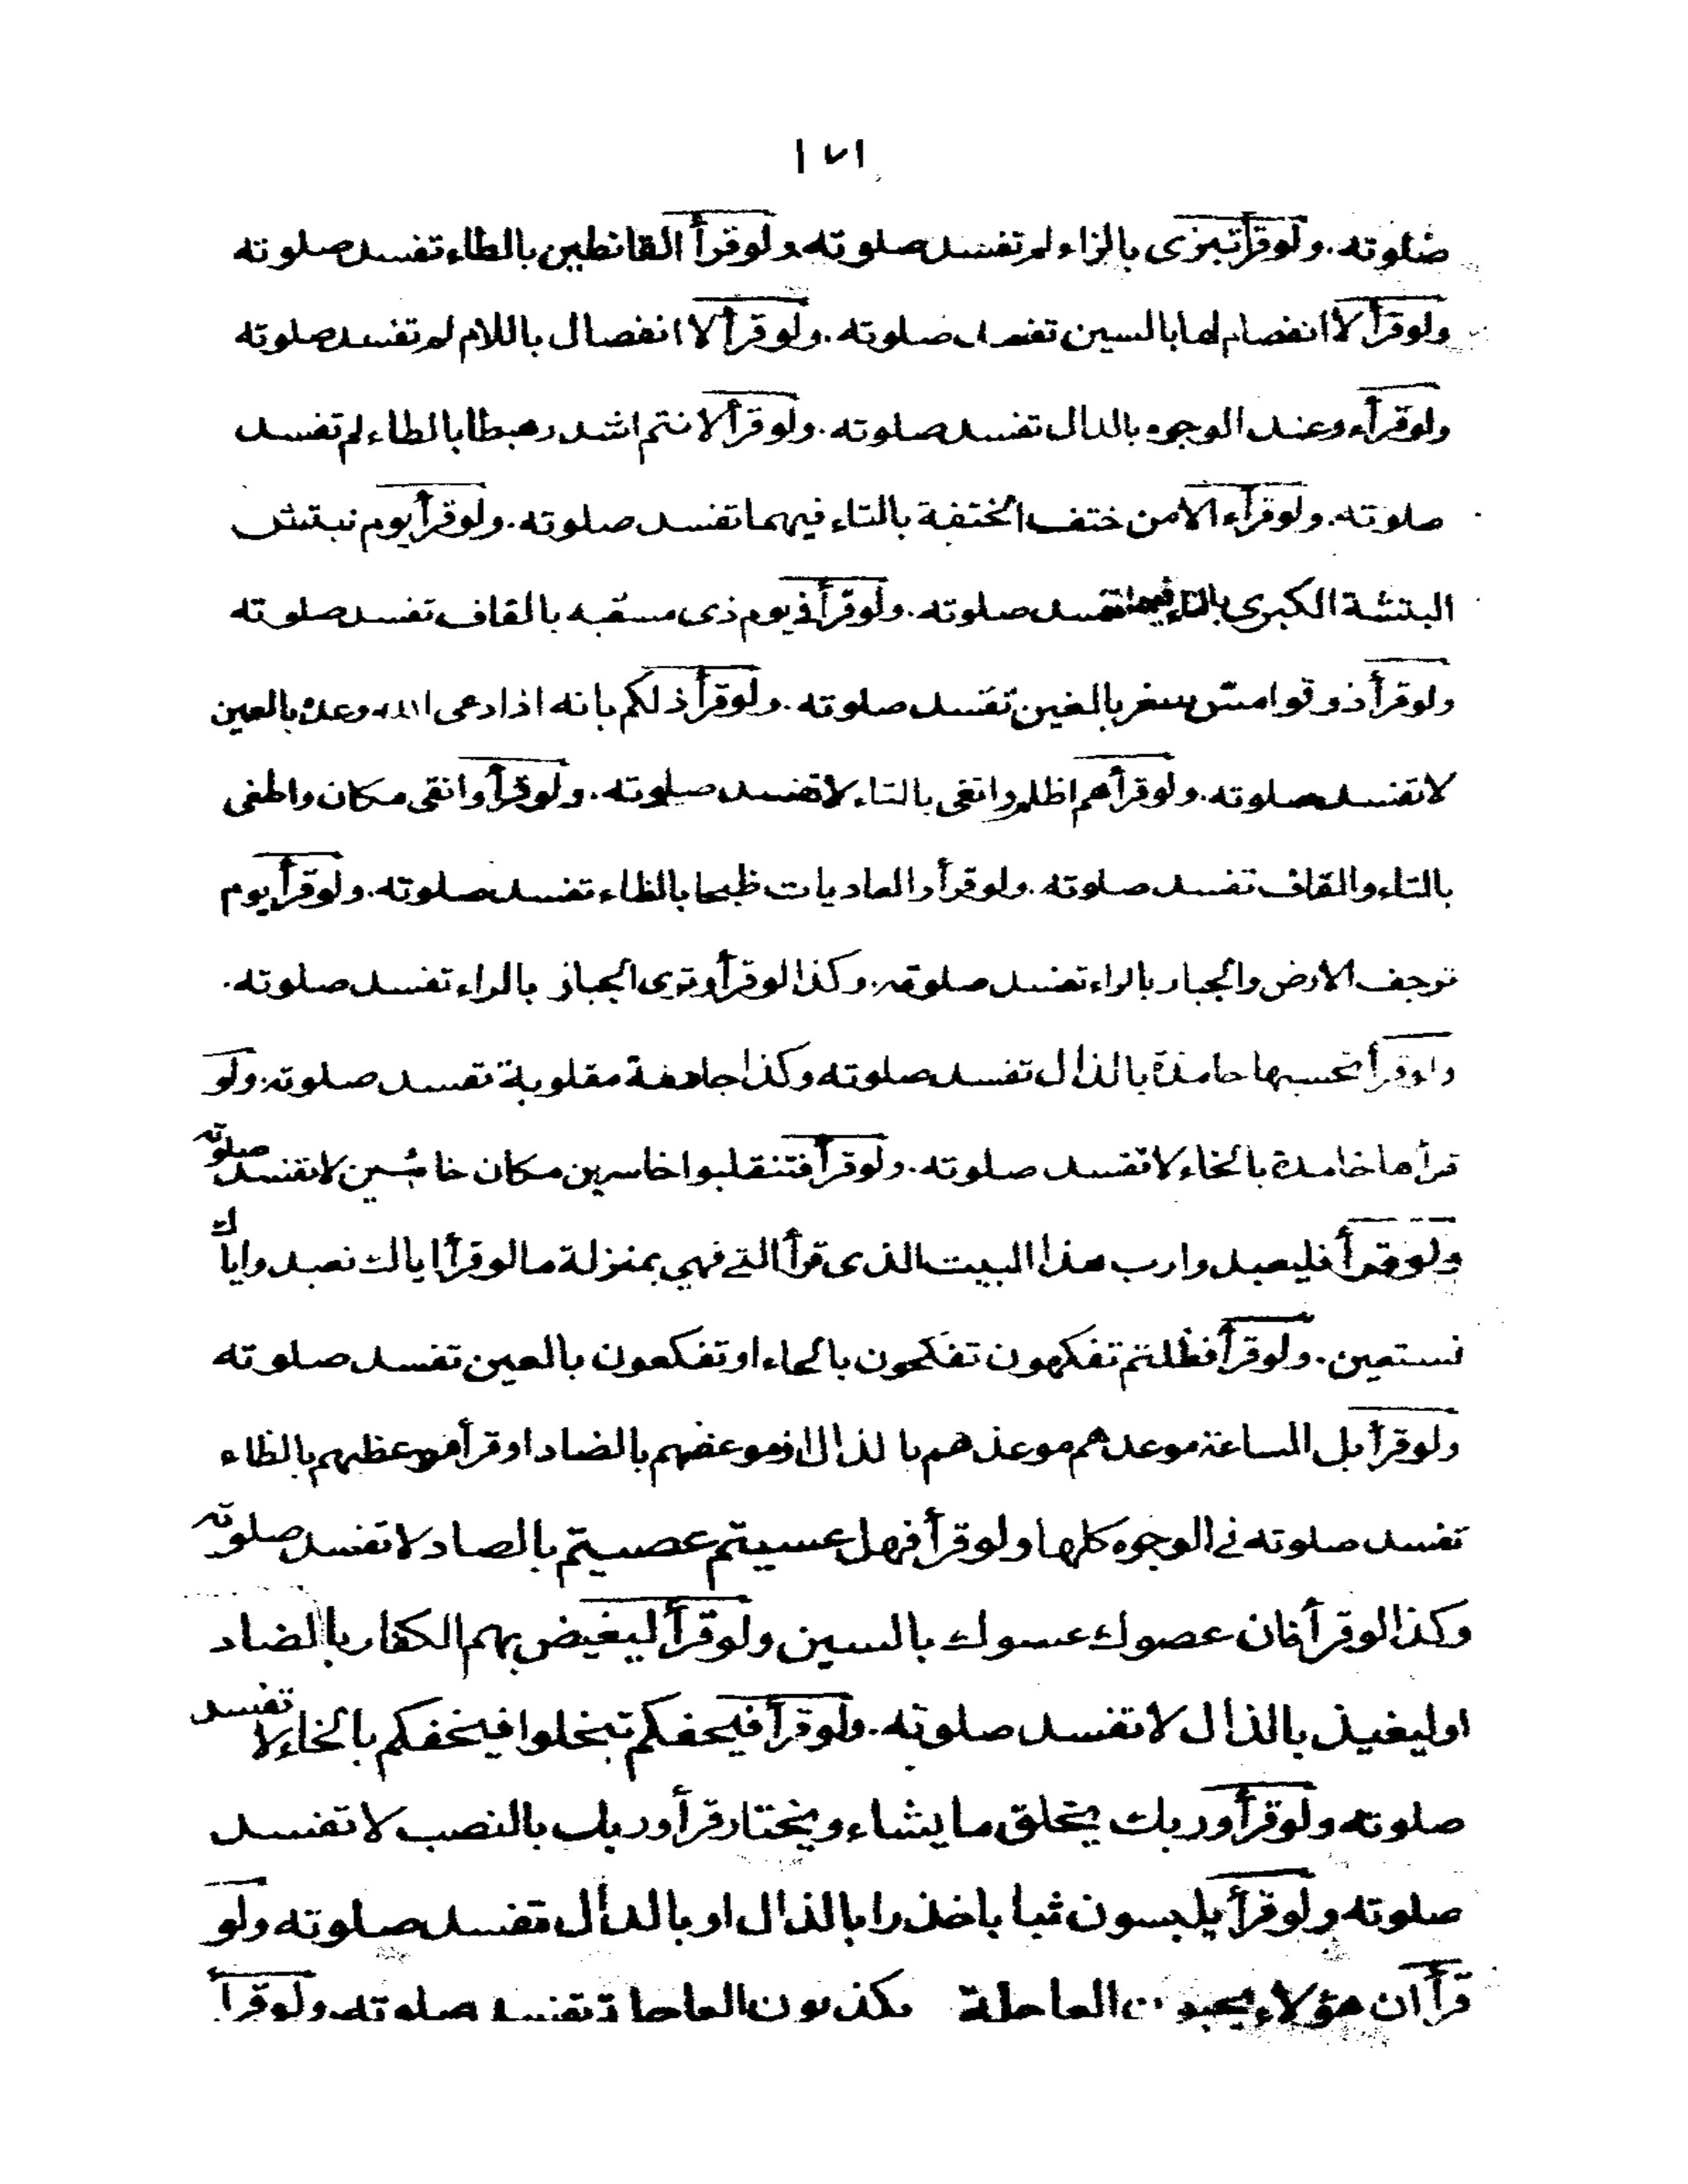 ١٧١
صلوته. ولوقرأ تبزى بالزاء لم تفسد صلوته ولوقرأ القانطين بالطاء تفسد صلوته
ولوقرأ لا انفصام لها بالسين تفسد صلوته. ولوقرأ لا انفصال باللام لم تفسد صلوته
ولوقرأء وعند الوجوه بالدال تفسد صلوته. ولوقرأ لانتم اشد رهبطا بالطاء لم تفسد
صلوته. ولوقرأء الا من ختف الختفة بالتاء فيهما تفسد صلوته. ولوقرأ يوم نبتش
البتشة الكبرى بالتاء فيهما تفسد صلوته. ولوقرأ في يوم ذى مسقبه بالقاف تفسد صلوته
ولوقرأ ذوقوا مس سغر بالغين تفسد صلوته. ولوقرأ ذلكم بانه اذا دعى الله وعده بالعين
لا تفسد صلوته. ولوقرأ هم اظلم واتغى بالتاء لا تفسد صلوته. ولوقرأ واتقى مكان واطغى
بالتاء والقاف تفسد صلوته. ولوقرأ والعاديات ظبحا بالظاء تفسد صلوته. ولوقرأ يوم
ترجف الارض والجبار بالراء تفسد صلوته. وكذا لوقرأ وترى الجبار بالراء تفسد صلوته.
ولوقرأ تحسبها جامذة بالذال تفسد صلوته وكذا جادمة مقلوبة تفسد صلوته. ولو
قرأها خامدة بالخاء لا تفسد صلوته. ولوقرأ فتنقلبوا خاسرين مكان خاسئين لا تفسد صلوته
ولوقرأ فليعبدوا رب هذا البيت الذى قرأ التي فهي بمنزلة ما لوقرأ اياك نعبد واياك
نستعين. ولوقرأ فظلتم تفكهون تفكحون بالحاء او تفكعون بالعين تفسد صلوته
ولوقرأ بل الساعة موعدهم موعذهم بالذال او موعضهم بالضاد او قرأ موعظهم بالظاء
تفسد صلوته في الوجوه كلها ولوقرأ فهل عسيتم عصيتم بالصاد لا تفسد صلوته
وكذا لوقرأ فان عصوك عسوك بالسين ولوقرأ ليغيض بهم الكفار بالضاد
او ليغيذ بالذال لا تفسد صلوته. ولوقرأ فيحفكم تبخلوا فيخفكم بالخاء لا تفسد
صلوته ولوقرأ وربك يخلق ما يشاء ويختار قرأ وربك بالنصب لا تفسد
صلوته ولوقرأ يلبسون ثيابا خذرا بالذال او بالدال تفسد صلوته ولو
قرأ ان هؤلاء يحبون العاجلة يكذبون العاجلة تفسد صلوته. ولوقرأ